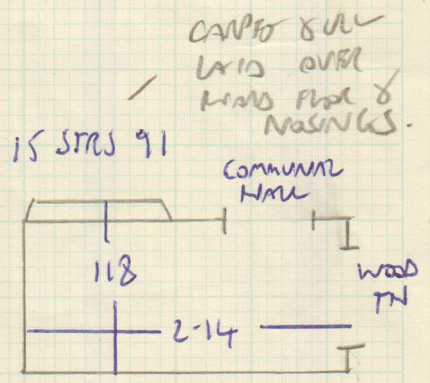 CARPET & U/L
LAID OVER
HARD FLOOR &
NOSINGS.
15 STRS 91
COMMUNAL
HALL
118
WOOD
TN
2-14